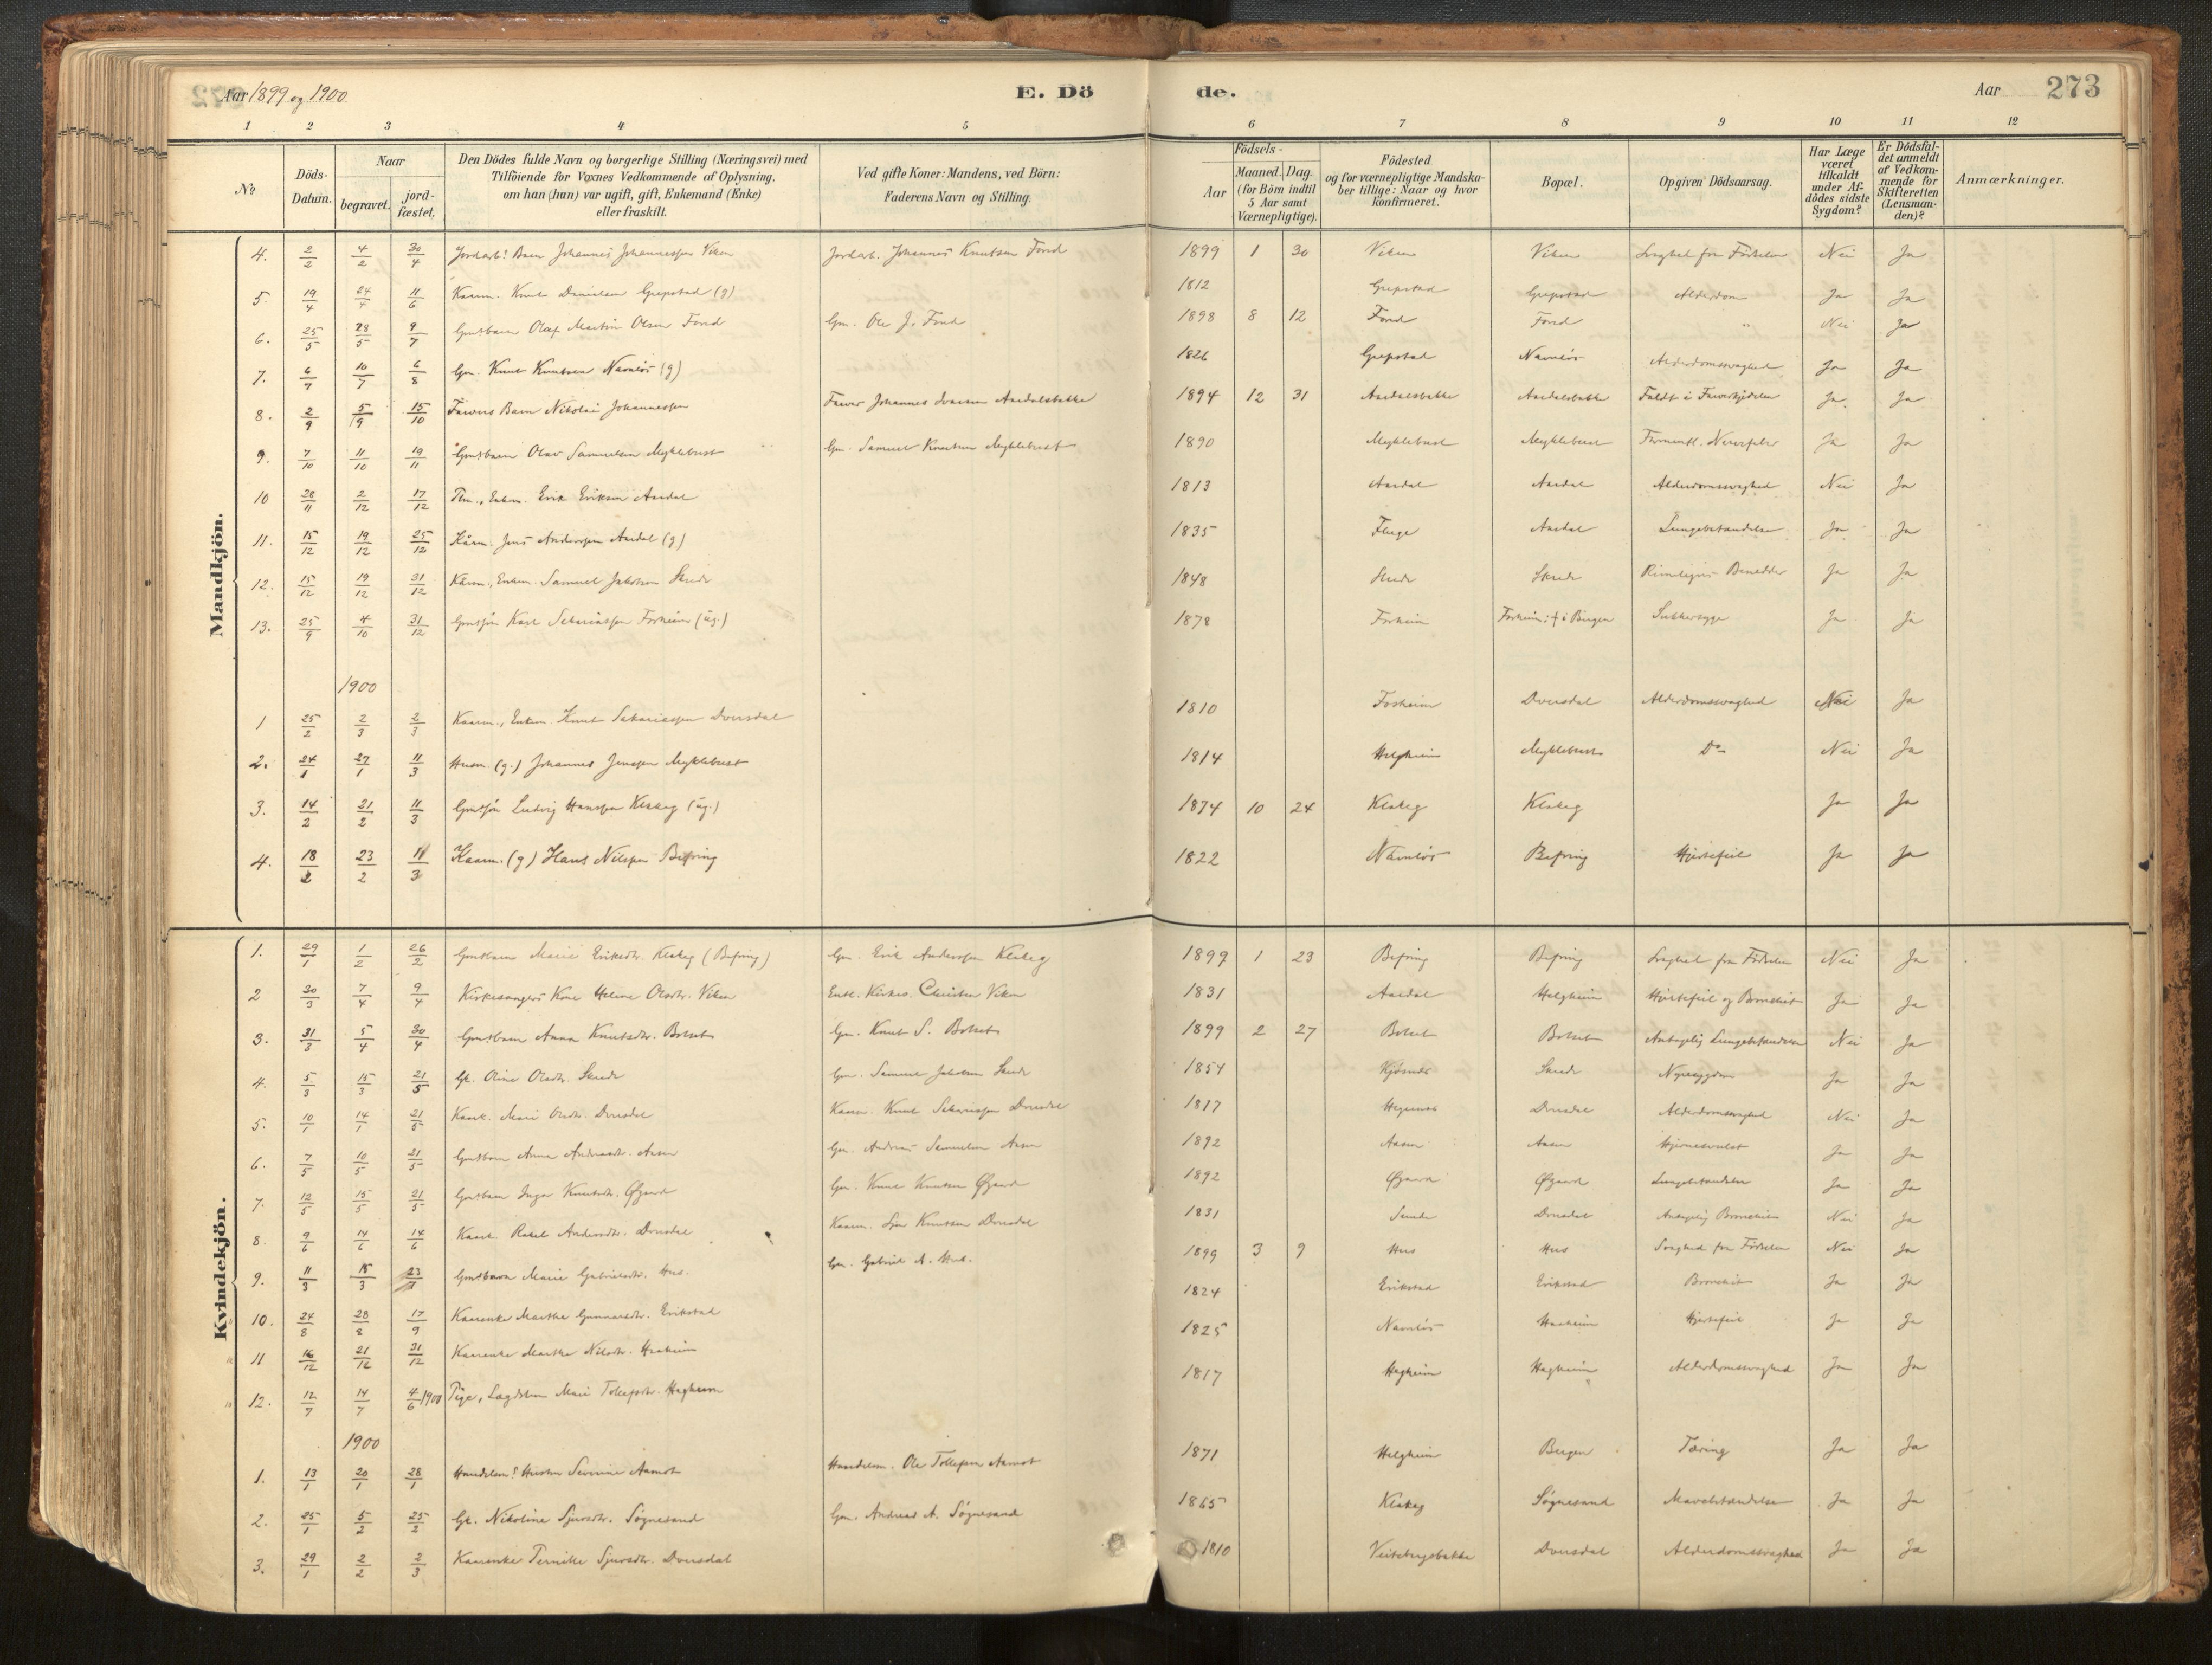 Aar 1899 og 1900
E. Dö
de.
Aar
273
1 2 3 4 5 6 7 8 9 10 11 12
No
Döds-Datum.
Naar begravet. jord-fæstet.
Den Dödes fulde Navn og borgerlige Stilling (Næringsvei) med Tilföiende for Voxnes Vedkommende af Oplysning, om han (hun) var ugift, gift, Enkemand (Enke) eller fraskilt.
Ved gifte Koner: Mandens, ved Börn: Faderens Navn og Stilling.
Födsels-
Aar Maaned. Dag. (for Börn indtil 5 Aar samt Værnepligtige).
Födested og for værnepligtige Mandskaber tillige: Naar og hvor konfirmeret.
Bopæl.
Opgiven Dödsaarsag.
Har Læge været tilkaldt under Afdödes sidste Sygdom?
Er Dödsfaldet anmeldt af Vedkommende for Skifteretten (Lensmanden)?
Anmærkninger.
Mandkjön.
4. 2/2 4/2 30/4 Jordarb: Barn Johannes Johannessen Viken Jordarb. Johannes Knutsen Fond 1899 1 30 Viken Viken Svaghed fra Födselen Nei Ja
5. 19/4 24/4 11/6 Kaarm. Knut Danielsen Grepstad (g) 1812 Grepstad Grepstad Alderdom Ja Ja
6. 25/5 28/5 9/7 Gmdbarn Olaf Martin Olsen Fond Gm. Ole J. Fond 1898 8 12 Fond Fond " Nei Ja
7. 6/7 10/7 6/8 Gm. Knut Knutsen Navnlös (g) 1826 Grepstad Navnlös Alderdomssvaghed Ja Ja
8. 2/9 5/9 15/10 Farvers Barn Nikolai Johannessen Farver Johannes Ivarsen Aardalsbakke 1894 12 31 Aardalsbakke Aardalsbakke Faldt i Farverkjedelen Ja Ja
9. 7/10 11/10 19/11 Gmdbarn Olav Samuelsen Myklebust Gm. Samuel Knutsen Myklebust 1890 Myklebust Myklebust Nervefeber Ja Ja
10 28/11 2/12 17/12 Enkm. Erik Eriksen Aardal 1813 Aardal Aardal Alderdomssvaghed Nei Ja
11. 15/12 19/12 25/12 Kårm. Jens Anderssen Aardal (g) 1835 Fluge Aardal Lungebetændelse Ja Ja
12. 15/12 19/12 31/12 Kårm., Enkm. Samuel Jakobsen Skrede 1848 Skrede Skrede Ja Ja
13. 25/9 4/10 31/12 Gmdsön Karl Sakariassen Forheim (ug.) 1878 Forheim Forheim: † i Bergen Sukkersyge Ja Ja
1900
1 25/2 2/3 2/3 Kaarm., Enkm. Knut Sakariassen Dvursdal 1810 Forheim Dvursdal Alderdomssvaghed Nei Ja
2. 24/1 27/1 11/3 Husm. (g.) Johannes Jenssen Myklebust 1814 Helgheim Myklebust Do Nei Ja
3. 14/2 21/2 11/3 Gmdsön Ludvig Hanssen Klakeg (ug.) 1874 10 24 Klakeg Klakeg Ja Ja
4. 18/2 23/2 11/3 Kaarm. (g) Hans Nilssen Befring 1822 Navnlös Befring Hjertefeil Ja Ja
Kvindekjön.
1. 29/1 1/2 26/2 Gmdbarn Marie Eriksdtr. Klakeg (Befring) Gm. Erik Anderssen Klakeg 1899 1 23 Befring Befring Svaghed fra Födselen Nei Ja
2 30/3 7/4 9/4 Kirkesangers Kone Helene Olsdtr. Viken Entl. Kirkes. Christen Viken 1831 Aardal Helgheim Hjertefeil og Bronchit Ja Ja
3. 31/3 5/4 30/4 Gmdbarn Anna Knutsdtr. Bolset Gm. Knut S. Bolset 1899 2 27 Bolset Bolset Antagelig Lungebetændelse Nei Ja
4. 5/3 15/3 21/5 Gk. Oline Olsdtr. Skrede Gm. Samuel Jakobsen Skrede 1854 Kjösnes Skrede Nyresygdom Ja Ja
5. 10/1 14/1 21/5 Kaark. Mari Dvursdal Kaarm. Knut Sakariassen Dvursdal 1817 Dvursdal Alderdomssvaghed Nei Ja
6. 7/5 10/5 21/5 Gmdbarn Anna Andreasdtr. Aasen Gm. Andreas Samuelsen Aasen 1892 Aasen Aasen Hjernesvulst Ja Ja
7. 12/5 15/5 21/5 Gmdbarn Inger Knutsdtr. Øgaard Gm. Knut Knutsen Øgaard 1892 Øgaard Øgaard Lungebetændelse Ja Ja
8. 9/6 14/6 14/6 Kaark. Rakel Andersdtr. Dvursdal Kaarm. Knutsen Dvursdal 1831 Sunde Dvursdal Antagelig Bronchit Nei Ja
9. 11/3 15/3 23/7 Gmdbarn Marie Gabrielsdtr. Hus. Gm. Gabriel A. Hus. 1899 3 9 Hus Hus Svaghed fra Födselen Nei Ja
10. 24/8 28/8 17/9 Kaarenke Marthe Gunnarsdtr. Erikstad 1824 Erikstad Erikstad Bronchit Ja Ja
11 16/12 21/12 31/12 Kaarenke Marthe Nilsdtr. Haaheim 1825 Navnlös Haaheim Hjertefeil Ja Ja
12. 12/7 14/7 4/6 1900 Pige, Lægdslem Mari Tollefsdtr. Hegheim 1817 Hegheim Hegheim Alderdomssvaghed Ja Ja
1900
1. 13/1 20/1 28/1 Handelsm: Hustru Severine Aamot Handelsm. Ole Tollefsen Aamot 1871 Helgheim Bergen Tæring Ja Ja
2. 25/1 5/2 25/2 Gk. Nikoline Sjursdtr. Søgnesand Gm. Andreas A. Søgnesand 1865 Klakeg Søgnesand Mavebetændelse Ja Ja
3. 29/1 2/2 2/3 Kaarenke Pernille Sjursdtr. Dvursdal 1810 Veitebergsbakke Dvursdal Alderdomssvaghed Ja Ja